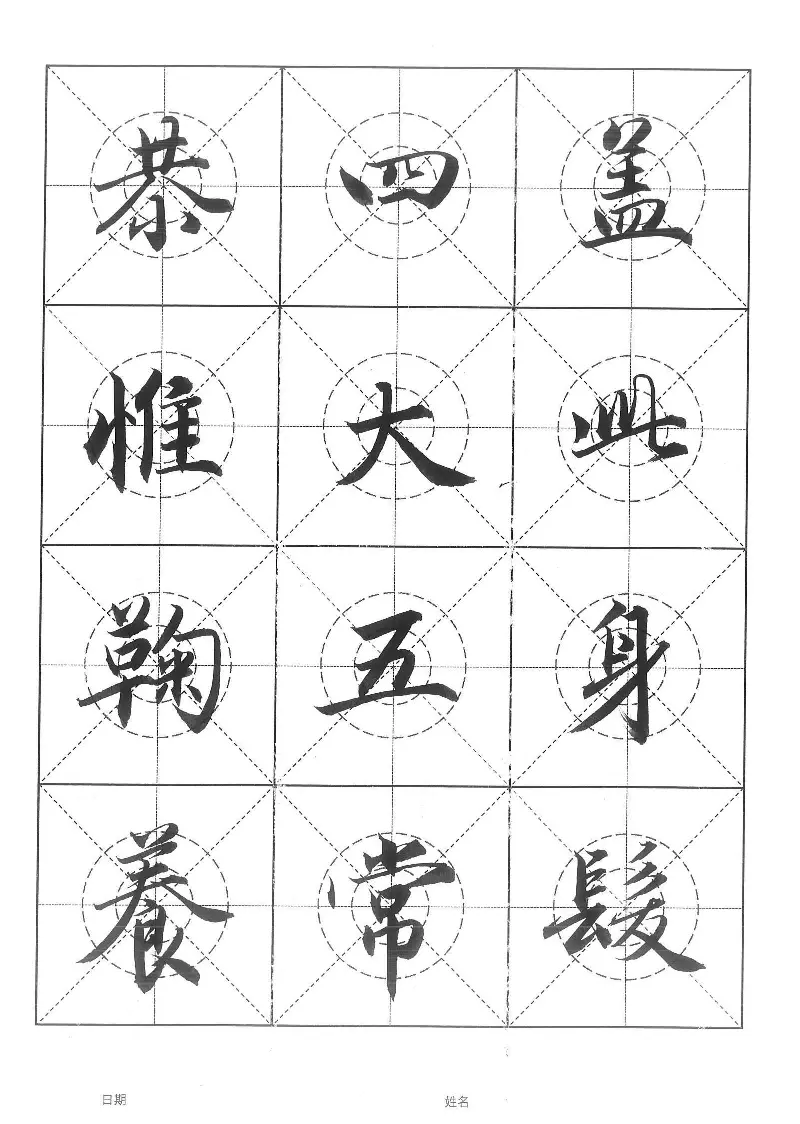 盖此身髮
四大五常
恭惟鞠養
日期
姓名